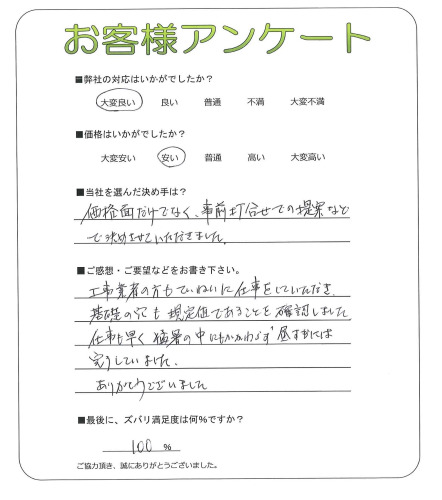 お客様アンケート
■弊社の対応はいかがでしたか？
大変良い 良い 普通 不満 大変不満
■価格はいかがでしたか？
大変安い 安い 普通 高い 大変高い
■当社を選んだ決め手は？
価格面だけでなく、事前打合せでの提案など
で決めさせていただきました。
■ご感想・ご要望などをお書き下さい。
工事業者の方もていねいに仕事をしていただき
基礎の穴も規定値であることを確認しました
仕事も早く 猛暑の中にもかかわらず 昼までには
完了していました。
ありがとうございました
■最後に、ズバリ満足度は何％ですか？
100 ％
ご協力頂き、誠にありがとうございました。